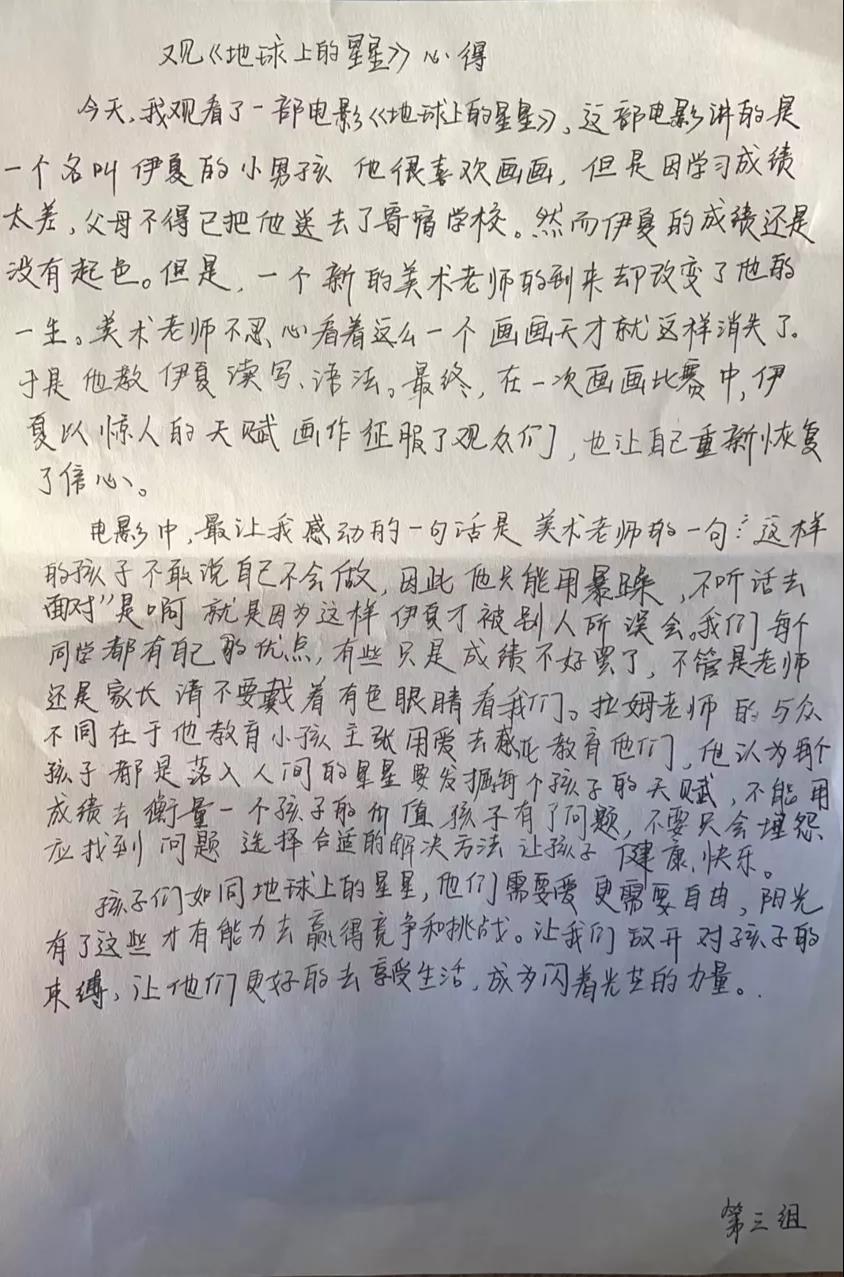 观《地球上的星星》心得
今天，我观看了一部电影《地球上的星星》，这部电影讲的是
一个名叫伊夏的小男孩 他很喜欢画画，但是因学习成绩
太差，父母不得已把他送去了寄宿学校。然而伊夏的成绩还是
没有起色。但是，一个新的美术老师的到来却改变了他的
一生。美术老师不忍心看着这么一个画画天才就这样消失了。
于是他教伊夏读写、语法。最终，在一次画画比赛中，伊
夏以惊人的天赋画作征服了观众们，也让自己重新恢复
了信心。
电影中，最让我感动的一句话是美术老师的一句：这样
的孩子不敢说自己不会做，因此他只能用暴躁，不听话去
面对”是啊 就是因为这样伊夏才被别人所误会。我们每个
同学都有自己的优点，有些只是成绩不好罢了，不管是老师
还是家长 请不要戴着有色眼睛看我们。拉姆老师的与众
不同在于他教育小孩主张用爱去感化教育他们，他认为每个
孩子都是落入人间的星星要发掘每个孩子的天赋，不能用
成绩去衡量一个孩子的价值 孩子有了问题，不要只会埋怨
应找到问题 选择合适的解决方法 让孩子健康、快乐。
孩子们如同地球上的星星，他们需要爱 更需要自由，阳光
有了这些才有能力去赢得竞争和挑战。让我们放开对孩子的
束缚，让他们更好的去享受生活，成为闪着光芒的力量。.
第三组